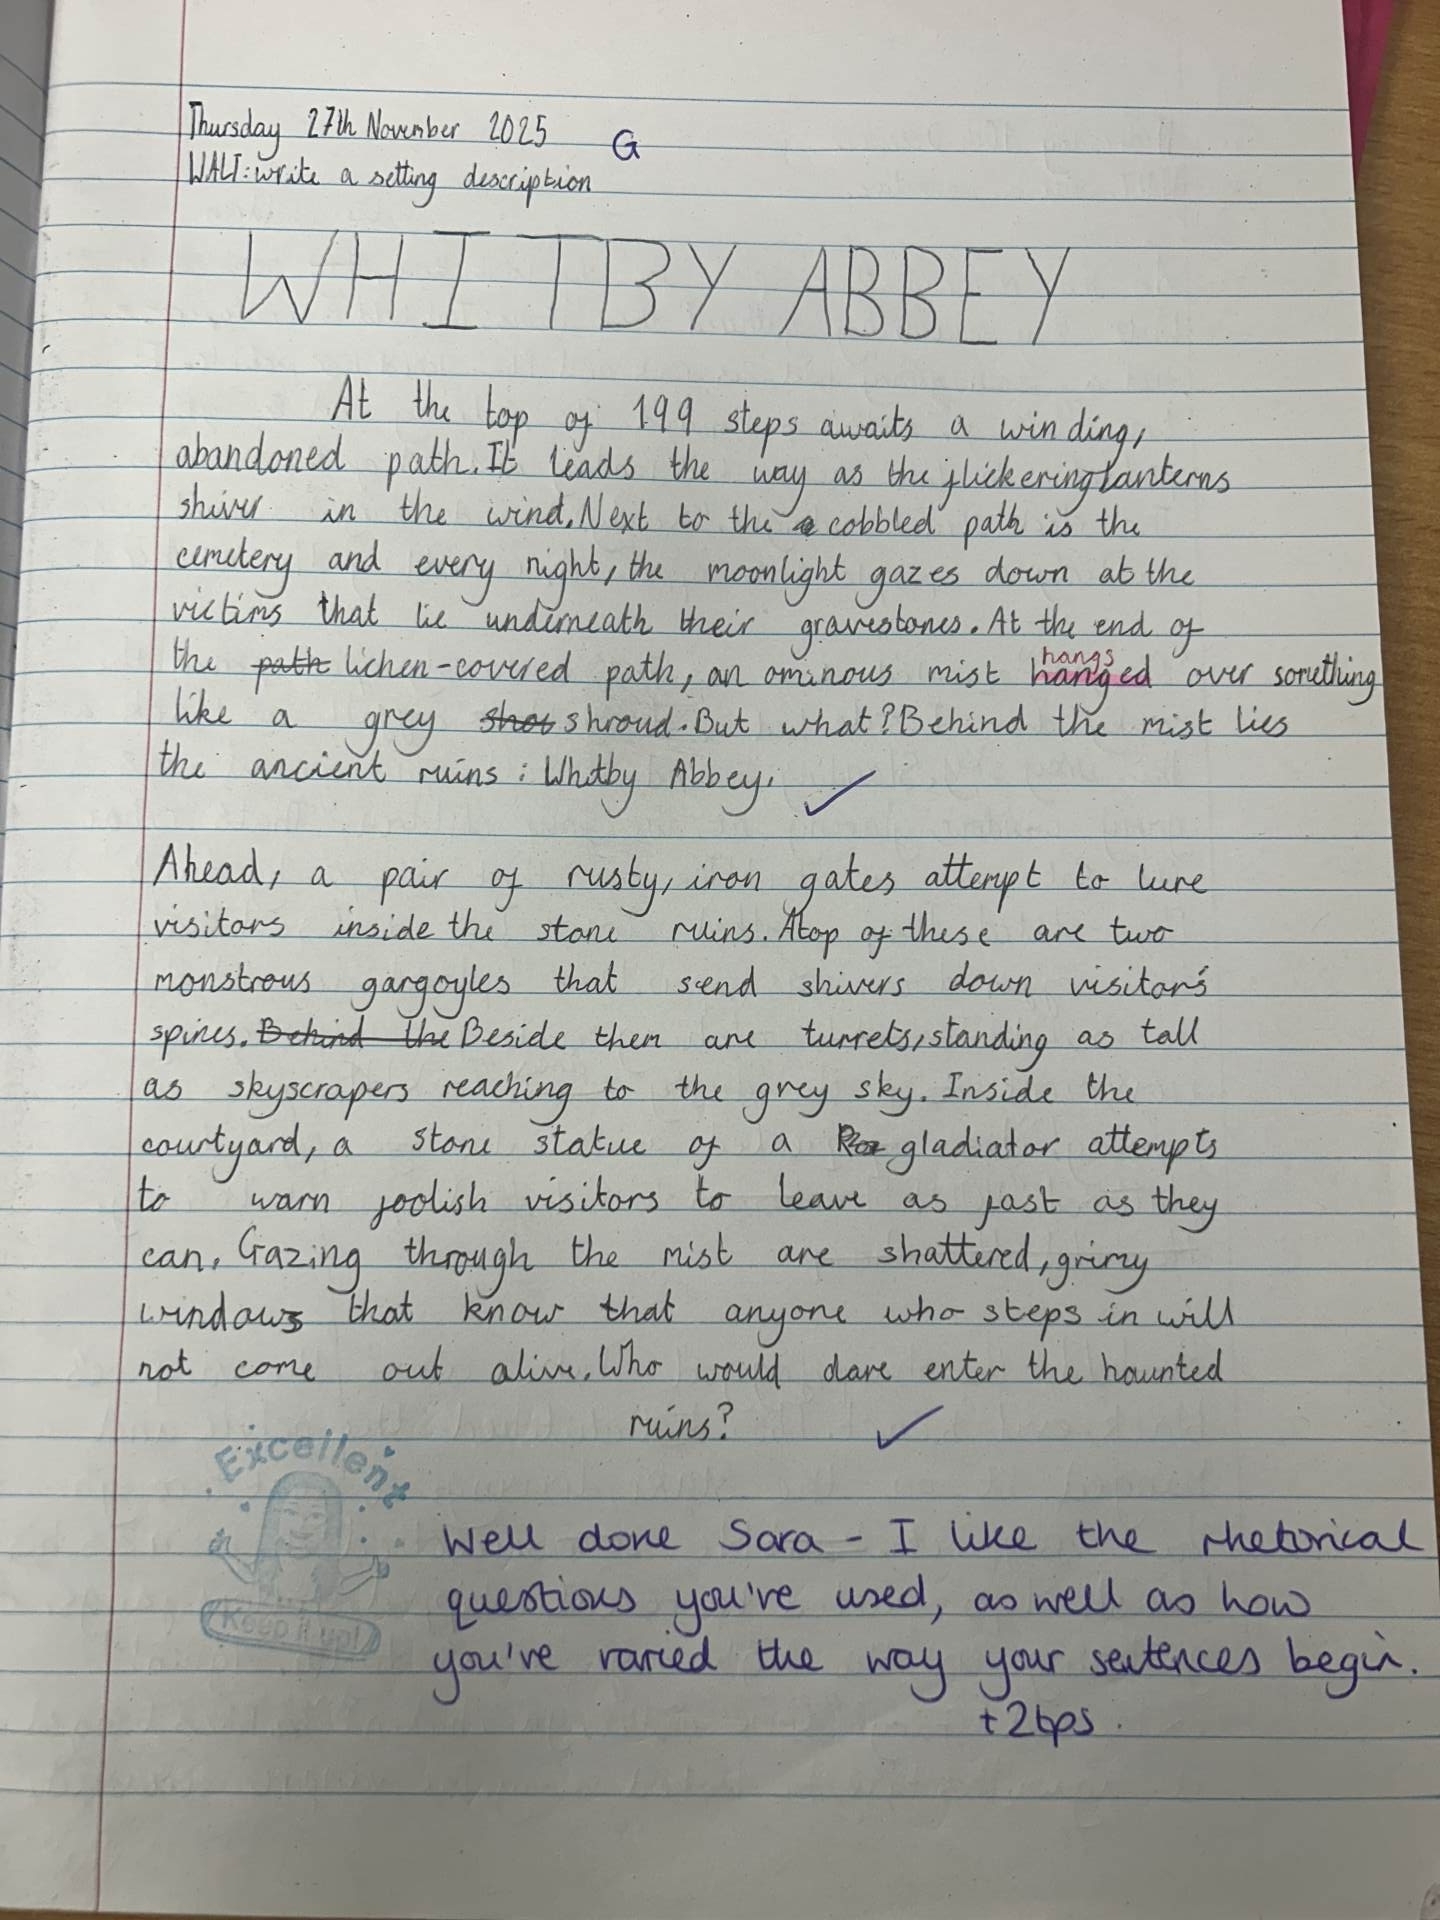 Thursday 27th November 2025 G
WALT: write a setting description
WHITBY ABBEY
At the top of 199 steps awaits a winding,
abandoned path. It leads the way as the flickering lanterns
shiver in the wind. Next to the cobbled path is the
cemetery and every night, the moonlight gazes down at the
victims that lie underneath their gravestones. At the end of
the path lichen-covered path, an ominous mist hanged over something
hangs
like a grey shou shroud. But what? Behind the mist lies
the ancient ruins: Whitby Abbey.
Ahead, a pair of rusty, iron gates attempt to lure
visitors inside the stone ruins. Atop of these are two
monstrous gargoyles that send shivers down visitor's
spines. Behind the Beside them are turrets, standing as tall
as skyscrapers reaching to the grey sky. Inside the
courtyard, a stone statue of a gladiator attempts
to warn foolish visitors to leave as fast as they
can. Gazing through the mist are shattered, grimy
windows that know that anyone who steps in will
not come out alive. Who would dare enter the haunted
ruins?
Excellent
Keep it up!
Well done Sara - I like the rhetorical
questions you've used, as well as how
you've varied the way your sentences begin.
+2bps.